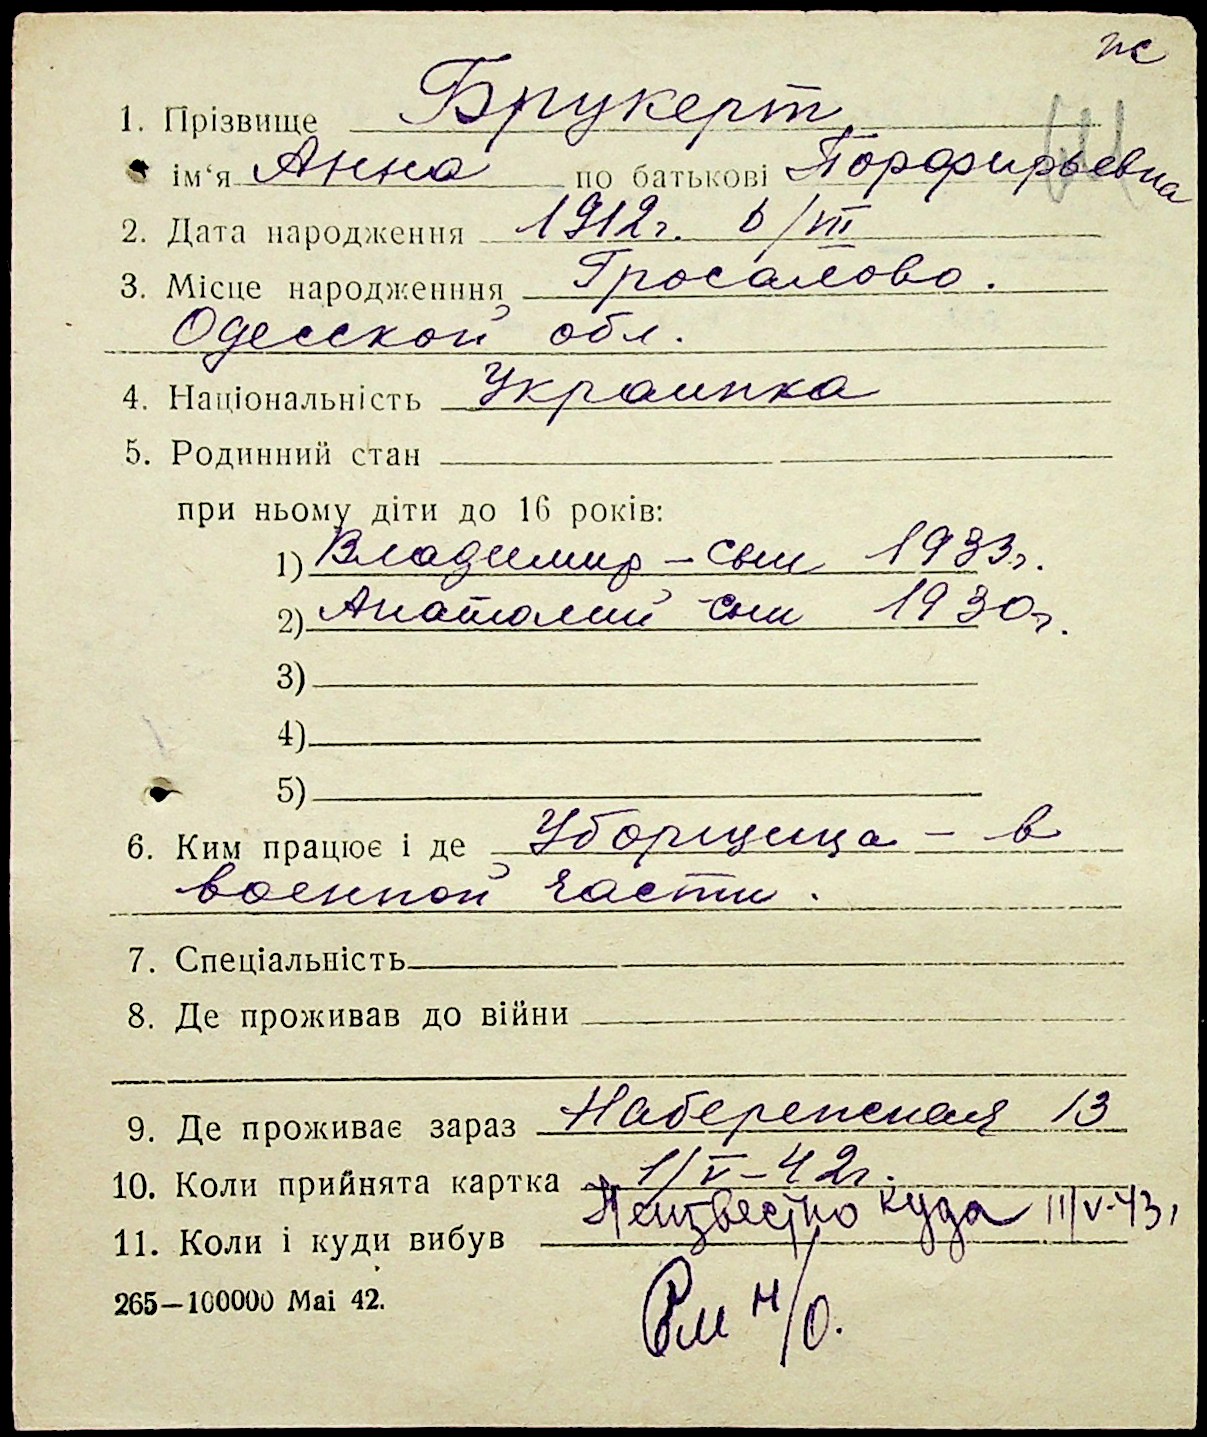 ж
1. Прізвище Брукерт
ім‘я Анна по батькові Порфирьевна
2. Дата народження 1912г. 6/III
3. Місце народженння Гросалово.
Одесской обл.
4. Національність Украинка
5. Родинний стан
при ньому діти до 16 років:
1) Владимир – сын 1933г.
2) Анатолий – сын 1930г.
3)
4)
5)
6. Ким працює і де Уборщица – в
военной части.
7. Спеціальність
8. Де проживав до війни
9. Де проживає зараз Набережная 13
10. Коли прийнята картка 1/V – 42г.
11. Коли і куди вибув Неизвестно куда 11/V-43г
265—100000 Маі 42.